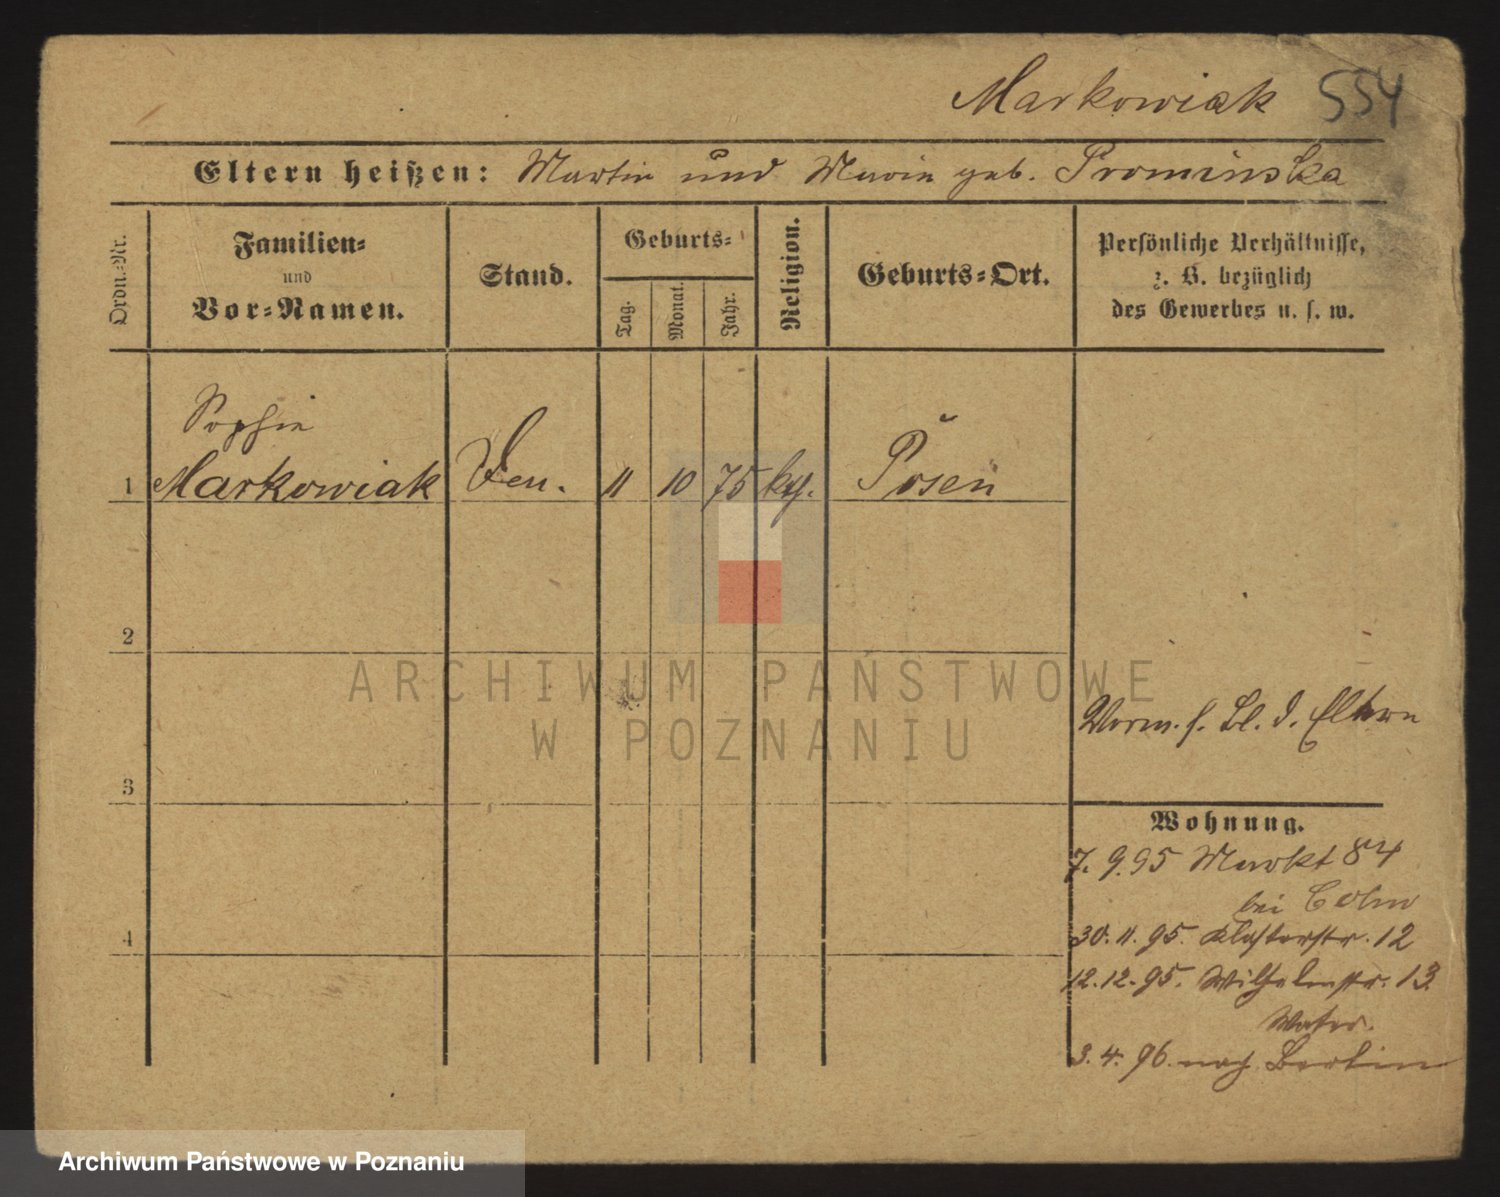 Markowiak 554
Eltern heißen: Martin und Marie geb. Prominska
Ordn.-Nr.
Familien-
und
Vor-Namen.
Stand.
Geburts-
Tag.
Monat.
Jahr.
Religion.
Geburts-Ort.
Persönliche Verhältnisse,
z. B. bezüglich
des Gewerbes u. s. w.
Sophie
1 Markowiak 11 10 75 kth. Posen
2
3
4
Vorm. s. Bl. d. Eltern
Wohnung.
7. 9. 95 Markt 84
bei
30. 11. 95. Klosterstr. 12
12. 12. 95. Wilhelmstr. 13.
3. 4. 96. nach Berlin
ARCHIWUM PAŃSTWOWE
W POZNANIU
Archiwum Państwowe w Poznaniu